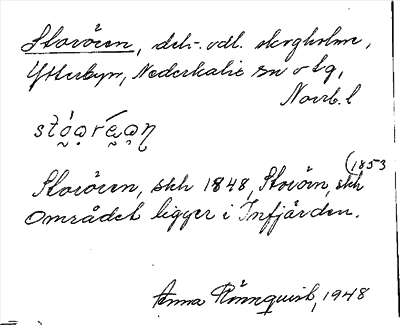 Storören, del-. odl. skogholme,
Ytterbyn, Nederkalix sn o tg,
Norrb. l
Storören, skh 1848, Storön, skh (1853
Området ligger i Infjärden.
Anna Rönnquist, 1948